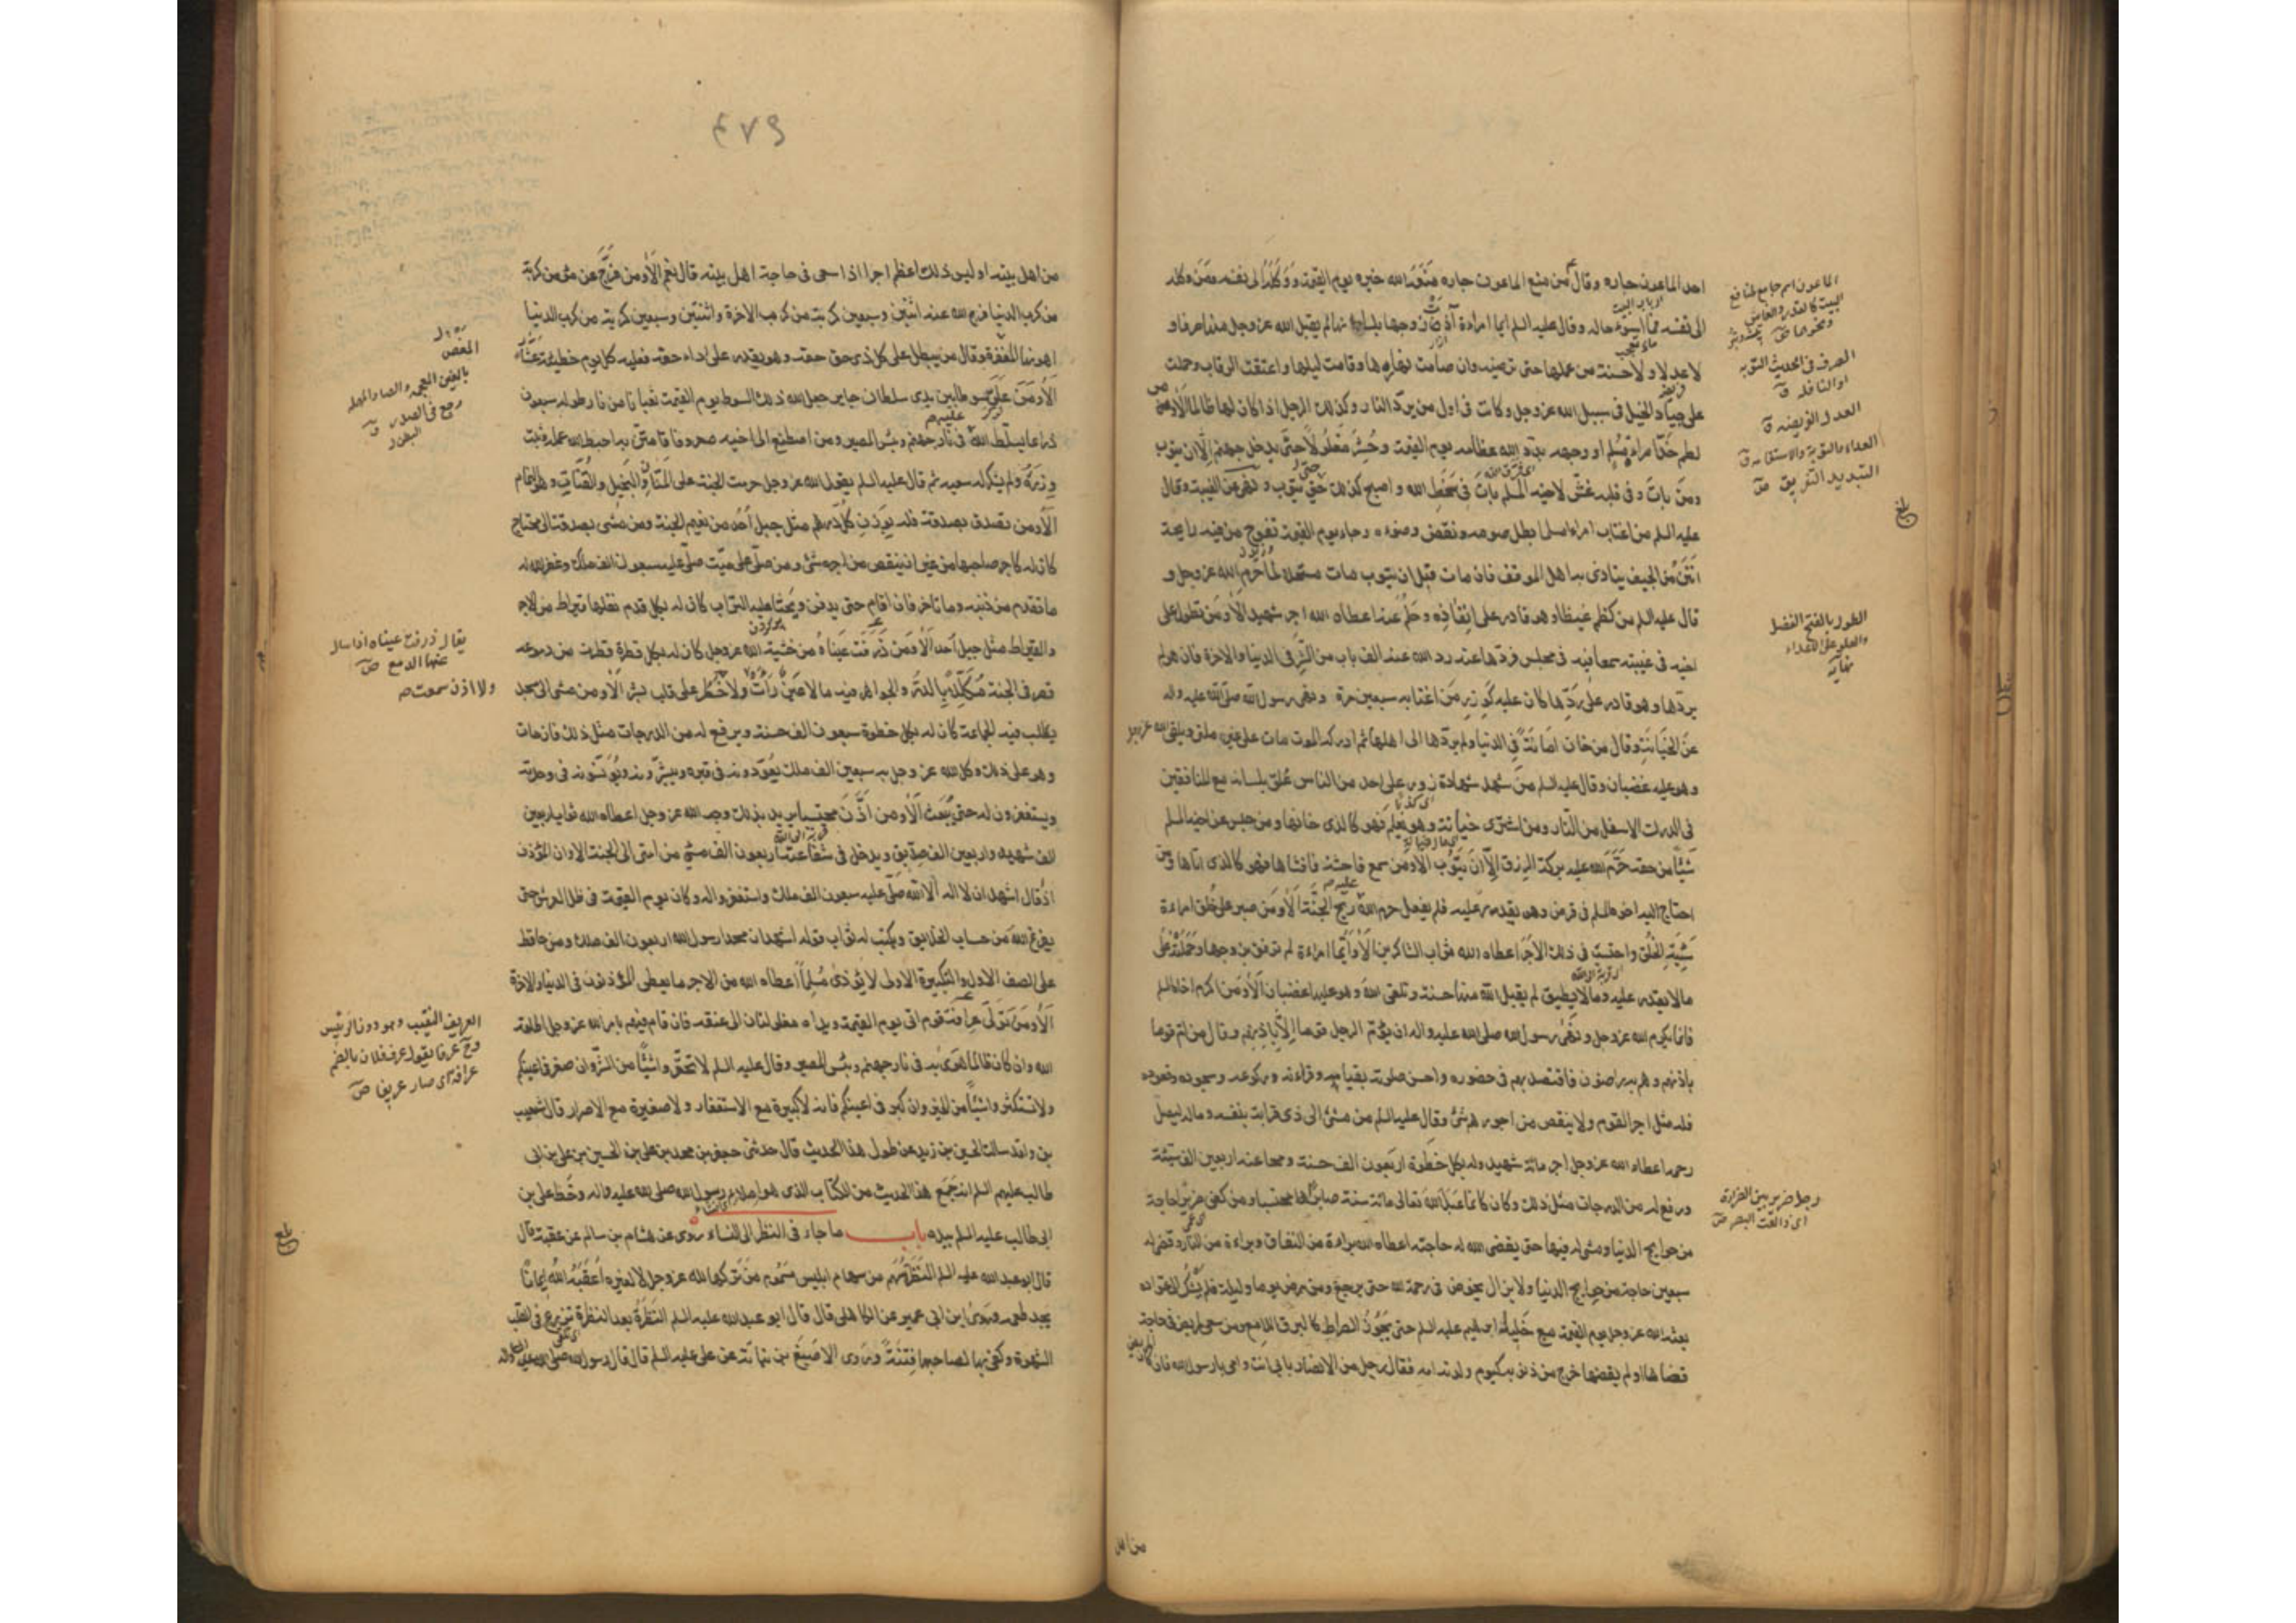 احد الماعون جاره وقال من منع الماعون جاره مَنَعَهُ الله خيره يوم القيمة وَوَكَلَهُ الى نفسه ومَن وكله
الى نفسه فما اسوء حاله وقال عليه السلم ايما امراءة آذت زوجها بلسانها لم يقبل الله عز وجل منها صرفا و
لا عدلا ولا حسنة من عملها حتى ترضيه وان صامت نهارها وقامت ليلها واعتقت الرقاب وحملت
على جياد الخيل فى سبيل الله عز وجل وكانت فى اول من يرد النار وكذلك الرجل اذا كان لها ظالما اَلاومن
لطم خدّ امرئ مسلم او وجهه بدّد الله عظامه يوم القيمة وحُشِرَ مغلولاً حتى يدخل جهنم الّا ان يتوب
ومَن باتَ وفى قلبه غش لاخيه المسلم باتَ فى سَخَطِ الله واصبح كذلك حتى يتوب ونهى عن الغيبة وقال
عليه السلم من اغتاب امراءمسلما بطل صومه ونقض وضوءه وجاء يوم القيمة تفوح من فيه رايحة
انتَنُ من الجيف يتاذى بها اهل الموقف فان مات قبل ان يتوب مات مستحلا لما حرم الله عز وجل و
قال عليه السلم من كظم غيظا وهو قادر على انفاذه وحلم عنه اعطاه الله اجر شهيد اَلاومَن تطول على
اخيه فى غيبته سمعها فيه فى مجلس فردّها عنه رد الله عنه الف باب من الشر فى الدنيا والاخرة فان هو لم
يردّها وهو قادر على ردّها كان عليه كَوِزرِ مَن اغتابه سبعين مرة ونهى رسول الله صلّى الله عليه واله
عن الخيانة وقال من خان امانة فى الدنيا ولم يردّها الى اهلها ثم ادركه الموت مات على غير ملتى ويلقى الله عز وجل
وهو عليه غضبان وقال عليه السلم من شهد شهادة زور على احد من الناس عُلّق بلسانه مع المنافقين
فى الدرك الاسفل من النار ومن اشترى خيانة وهو يعلم فهو كالذى خانها ومن حبس عن اخيه المسلم
شيئًا من حقه حرّم الله عليه بركة الرزق الّا ان يتوب الاومن سمع فاحشة فافشاها فهو كالذى اتاها ومن
احتاج اليه اخوه المسلم فى قرض وهو يقدر عليه فلم يفعل حرم الله عليه ريح الجنّة اَلاومَن صبر على خُلق امراءة
سَيّئَةِ الخُلق واحتسب فى ذلك الاجر اعطاه الله ثواب الشاكرين اَلاوايّما امراءة لم ترفق بزوجها وحملته على
مالا يقدر عليه ومالا يطيق لم يقبل الله منها حسنة وتلقى الله وهو عليها غضبان اَلاومَن اكرم اخاه المسلم
فانما يكرم الله عز وجل ونهى رسول الله صلى الله عليه واله ان يؤم الرجل قوما الّا باذنهم وقال من ام قوما
باذنهم وهم به راضون فاقتصد بهم فى حضوره واحسن صلوته بقيامه وقراءته وركوعه وسجوده وقعوده
فله مثل اجر القوم ولا ينقص من اجورهم شئ وقال عليه السلم من مشى الى ذى قرابة بنفسه وماله ليصل
رحمه اعطاه الله عز وجل اجر مائة شهيد وله بكل خطوة اربعون الف حسنة ومحا عنه اربعين الف سيئة
ورفع له من الدرجات مثل ذلك وكان كانما عَبَدَ الله تعالى مائة سنة صابرا محتسبا ومن كفى ضريرا حاجة
من حوايج الدنيا ومشى له فيها حتى يقضى الله له حاجته اعطاه الله براءة من النفاق وبراءة من النار وقضى له
سبعين حاجة من حوايج الدنيا ولا يزال يخوض فى رحمة الله حتى يرجع ومن مرض يوما وليلة فلم يشك الى عوّاده
بعثه الله عز وجل يوم القيمة مع خليله ابراهيم عليه السلم حتى يجوز الصراط كالبرق اللامع ومن سعى لمريض فى حاجة
قضاها او لم يقضها خرج من ذنوبه كيوم ولدته امه فقال رجل من الانصار بابى انت وامى يا رسول الله فان كان المريض
الماعون اسم جامع لمنافع
البيت كالقدر والفاس
ونحوهما
الصرف فى الحديث التوبه
او النافله ق
العدل الفريضه ق
التبديد التفريق ص
بلغ
الطول بالفتح الفضل
والعلو على الاعداء
نهايه
رجل ضرير بين الضرارة
اى ذاهب البصر ص
من اهل
٤٧٩
من اهل بيته اوليس ذلك اعظم اجرا اذا سعى فى حاجة اهل بيته قال نعم اَلاومن فرّج عن مؤمن كربة
من كرب الدنيا فرج الله عنه اثنتين وسبعين كربة من كرب الاخرة واثنتين وسبعين كربة من كرب الدنيا
اهونها المغص وقال من يبطل على كل ذى حق حقه وهو يقدر على اداء حقه فعليه كل يوم خطيئة عشّار
اَلاومَن علّق سوطا بين يدى سلطان جاير جعل الله ذلك السوط يوم القيمة ثعبانا من نار طوله سبعون
ذراعا يسلّطه الله عليه فى نار جهنم وبئس المصير ومن اصطنع الى اخيه معروفا فامتنّ به احبط الله عمله وثبت
وزره ولم يشكر له سعيه ثم قال عليه السلم يقول الله عز وجل حرمت الجنة على المنّان والبخيل والقتّات وهو النمام
اَلاومن تصدق بصدقة فله بوزن كل درهم مثل جبل اُحُد من نعيم الجنة ومن مشى بصدقة الى محتاج
كان له كاجر صاحبها من غير ان ينقص من اجره شئ ومن صلّى على ميّت صلّى عليه سبعون الف ملك وغفر الله له
ما تقدم من ذنبه وما تاخر فان اقام حتى يدفن ويحثا عليه التراب كان له بكل قدم نقلها قيراط من الاجر
والقيراط مثل جبل اُحد اَلاومن ذرفت عيناه من خشية الله عز وجل كان له بكل قطرة قطرت من دموعه
قصر فى الجنة مكلّلة بالدر والجواهر فيه مالا عين رأت ولا خطر على قلب بشر الاومن مشى الى مسجد
يطلب فيه الجماعة كان له بكل خطوة سبعون الف حسنة ويرفع له من الدرجات مثل ذلك فان مات
وهو على ذلك وكل الله عز وجل به سبعين الف ملك يعودونه فى قبره ويبشّرونه ويؤنسونه فى وحدته
ويستغفرون له حتى يبعث اَلاومن اذّن محتسبا يريد بذلك وجه الله عز وجل اعطاه الله ثواب اربعين
الف شهيد واربعين الف صدّيق ويدخل فى شفاعته اربعون الف مسئ من امتى الى الجنة الاوان المؤذن
اذا قال اشهد ان لا اله الا الله صلّى عليه سبعون الف ملك واستغفروا له وكان يوم القيمة فى ظل العرش حتى
يفرغ الله من حساب الخلايق ويكتب له ثواب قوله اشهد ان محمدا رسول الله اربعون الف ملك ومن حافظ
على الصف الاول والتكبيرة الاولى لا يؤذى مسلماً اعطاه الله من الاجر ما يعطى المؤذنون فى الدنيا والاخرة
اَلاومَن تولّى عرافة قوم اتى يوم القيمة ويداه مغلولتان الى عنقه فان قام فيهم بامر الله عز وجل اطلقه
الله وان كان ظالما هوى به فى نار جهنم وبئس المصير وقال عليه السلم لا تحقّروا شيئًا من الشر وان صغر فى اعينكم
ولا تستكثروا شيئًا من الخير وان كبر فى اعينكم فانه لا كبيرة مع الاستغفار ولا صغيرة مع الاصرار قال شعيب
بن واقد سالت الحسين بن زيد عن طول هذا الحديث قال حدثنى جعفر بن محمد بن على بن الحسين بن على بن ابى
طالب عليهم السلم انه جَمَع هذا الحديث من الكتاب الذى هو املاء رسول الله صلى الله عليه واله وخط على بن
ابى طالب عليه السلم بيده باب ما جاء فى النظر الى النساء روى عن هشام بن سالم عن عقبة قال
قال ابو عبد الله عليه السلم النظرة سهم من سهام ابليس مسموم من تركها لله عز وجل لا لغيره اعقبه الله ايمانًا
يجد طعمه وروى ابن ابى عمير عن الكاهلى قال قال ابو عبد الله عليه السلم النظرة بعد النظرة تزرع فى القلب
الشهوة وكفى بها لصاحبها فتنةً وروى الاصبغ بن نباتة عن على عليه السلم قال قال رسول الله صلى الله عليه واله
المغص
بالغين المعجمه والصاد المهمله
يقال ذرفت عيناه اذا سال
عنهما الدمع ص
ولا اذن سمعت صح
العريف النقيب وهو دون الرئيس
عرافة اى صار عريفا ص
بلغ